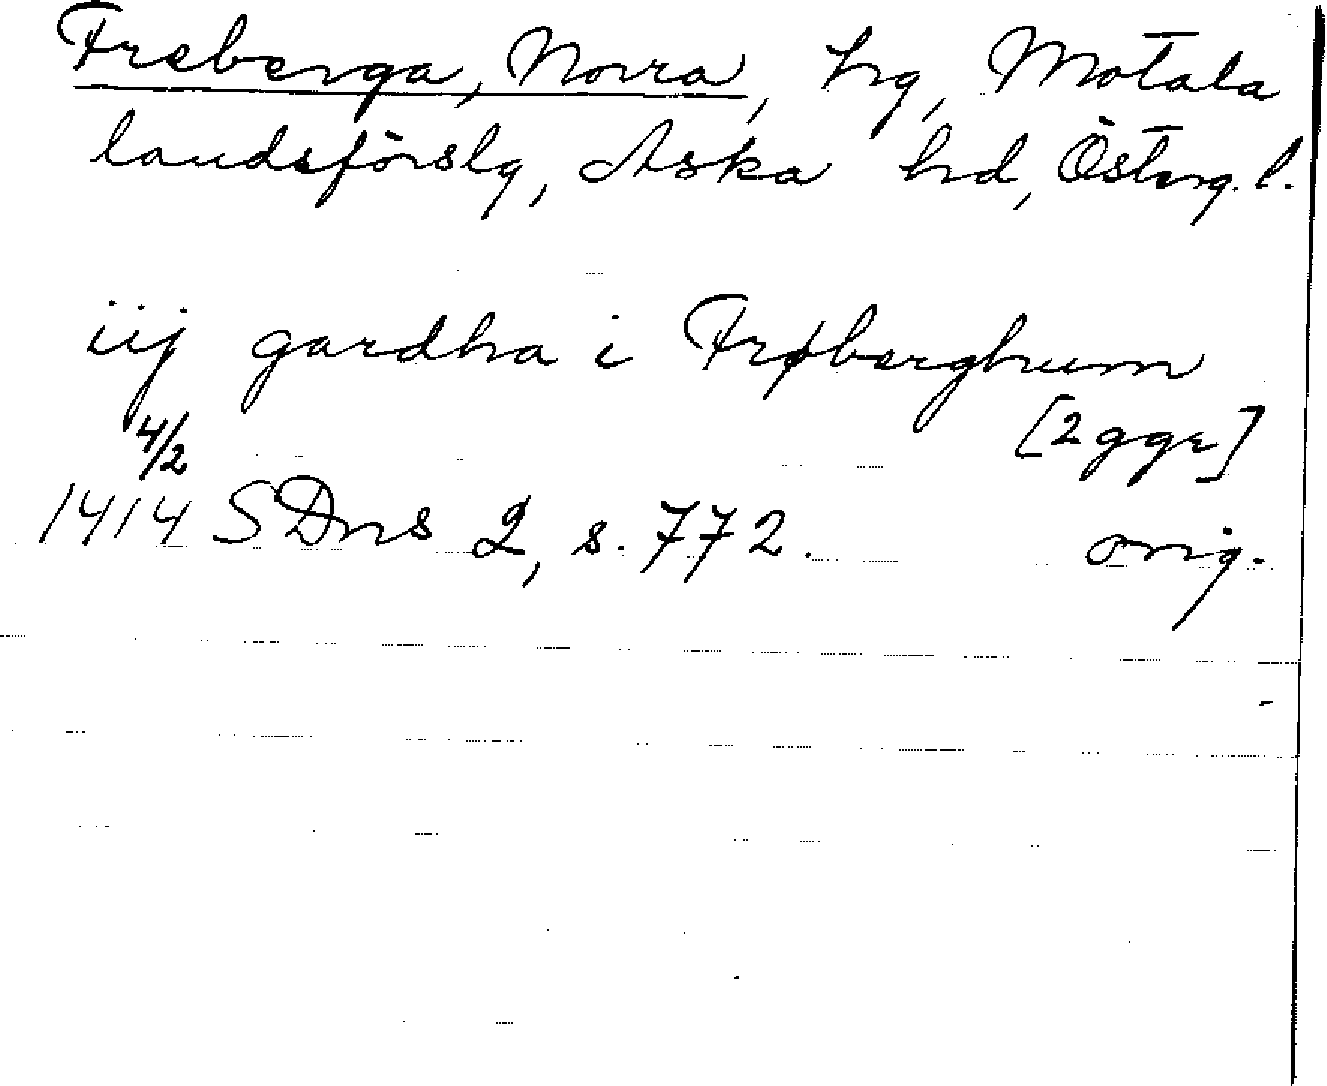 Freberga, Norra, hg, Motala
landsförslg, Aska hd, Österg. l.
iij gardha i Frøberghum
[2 ggr]
4/2
1414 SDns 2, s. 772. orig.